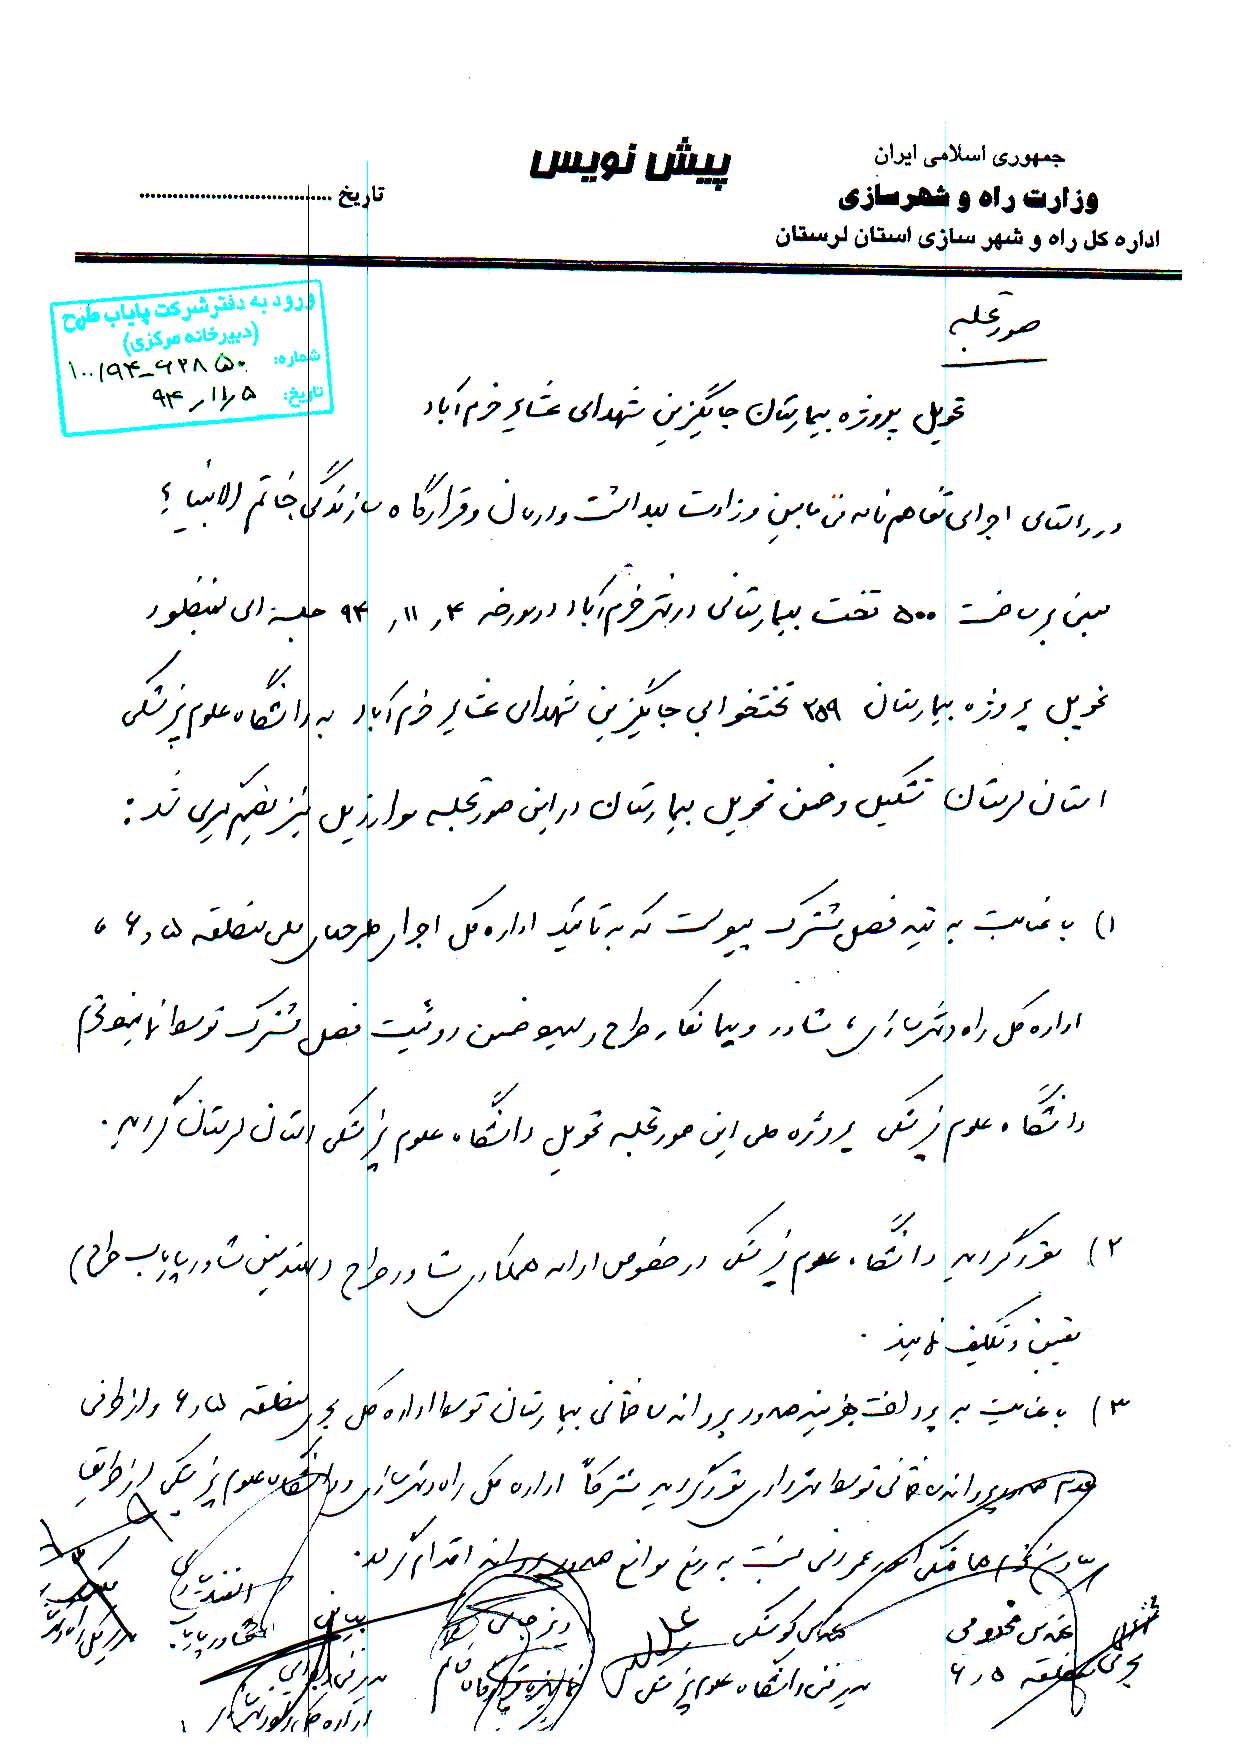 جمهوری اسلامی ایران
وزارت راه و شهرسازی
اداره کل راه و شهر سازی استان لرستان
پیش نویس
تاریخ ................................
ورود به دفتر شرکت پایاب طرح
(دبیرخانه مرکزی)
شماره: ۱۰۰/۹۴-۶۲۸۵۰
تاریخ: ۹۴/۱۱/۵
صورتجلسه
تحویل پروژه بیمارستان جایگزین شهدای عشایر خرم آباد
در راستای اجرای تفاهم نامه فی مابین وزارت بهداشت و درمان و قرارگاه سازندگی خاتم الانبیاء
مبنی بر ساخت ۵۰۰ تخت بیمارستانی در شهر خرم آباد در مورخه ۹۴/۱۱/۴ جلسه ای بمنظور
تحویل پروژه بیمارستان ۳۵۹ تختخوابی جایگزین شهدای عشایر خرم آباد به دانشگاه علوم پزشکی
استان لرستان تشکیل و ضمن تحویل بیمارستان در این صورتجلسه موارد زیل نیز تصمیم گیری شد :
۱) با عنایت به تهیه فصل مشترک پیوست که به تائید اداره کل اجرای طرحهای ملی منطقه ۵ و ۶ ،
اداره کل راه و شهرسازی ، مشاور و پیمانکار طرح رسیده ضمن روئیت فصل مشترک توسط
دانشگاه علوم پزشکی پروژه طی این صورتجلسه تحویل دانشگاه علوم پزشکی استان لرستان گردید .
۲) مقرر گردید دانشگاه علوم پزشکی در خصوص ادامه همکاری مشاور طرح (مهندسین مشاور پایاب طرح)
تعیین و تکلیف نماید .
۳) با عنایت به پرداخت هزینه صدور پروانه ساختمانی بیمارستان توسط اداره کل مجری منطقه ۵ و ۶ و از طرفی
عدم صدور پروانه ساختمانی توسط شهرداری مقرر گردید مشترکاً اداره کل راه و شهرسازی و دانشگاه علوم پزشکی از طریق
هماهنگی امور عمرانی نسبت به رفع موانع صدور پروانه اقدام گردد .
مهندس مخدومی
منطقه ۵ و ۶
مهندس کوشکی
مدیر فنی دانشگاه علوم پزشکی
مشاور پایاب
مدیر فنی و اجرایی
اداره کل راه و شهرسازی